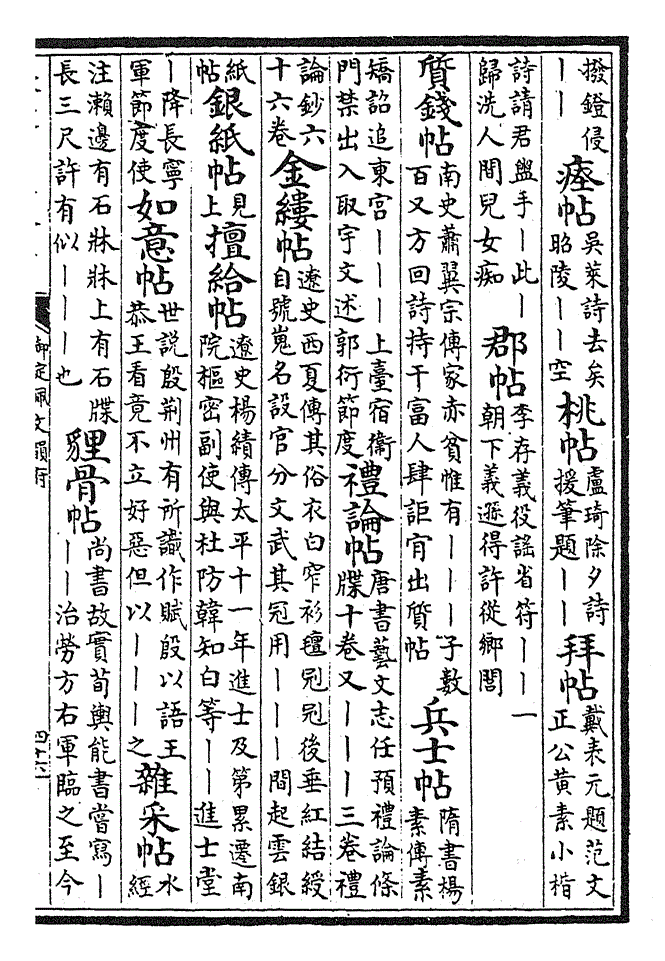 撥鐙侵
——
瘞帖
吳萊詩去矣
昭陵——空
桃帖
盧琦除夕詩
援筆題——
拜帖
戴表元題范文
正公黃素小楷
詩請君盥手—此—
歸洗人間兒女痴
郡帖
李存義役謠省符——一
朝下義遜得許從鄉閭
質錢帖
南史蕭翼宗傳家赤貧惟有———子數
百又方回詩持干富人肆詎肎出質帖
兵士帖
隋書楊
素傳素
矯詔追東宮———上臺宿衛
門禁出入取宇文述郭衍節度
禮論帖
唐書藝文志任預禮論條
牒十卷又———三卷禮
論鈔六
十六卷
金縷帖
遼史西夏傳其俗衣白窄衫氊冠冠後垂紅結綬
自號嵬名設官分文武其冠用———間起雲銀
紙
帖
銀紙帖
見
上
擅給帖
遼史楊績傳太平十一年進士及第累遷南
院樞密副使與杜防韓知白等——進士堂
—降長寧
軍節度使
如意帖
世說殷荊州有所識作賦殷以語王
恭王看竟不立好惡但以———之
雜采帖
水
經
注瀨邊有石牀牀上有石牒
長三尺許有似———也
貍骨帖
尚書故實荀輿能書嘗寫—
——治勞方右軍臨之至今
御定佩文韻府